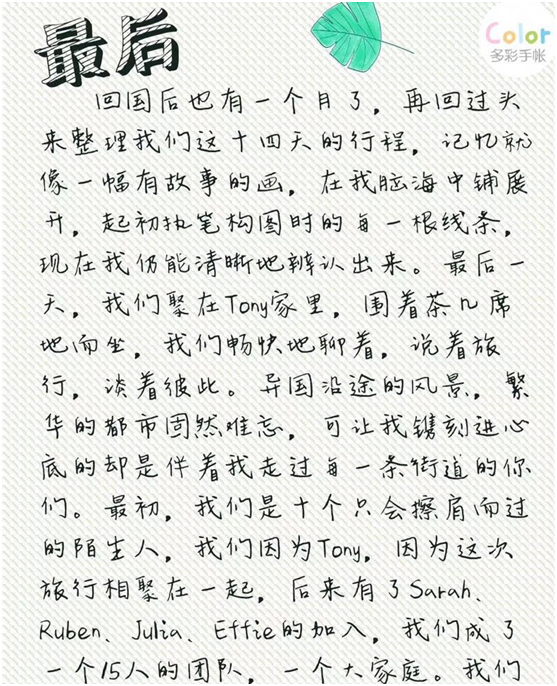 Color
多彩手帐
最后
回国后也有一个月了，再回过头
来整理我们这十四天的行程，记忆就
像一幅有故事的画，在我脑海中铺展
开，起初执笔构图时的每一根线条，
现在我仍能清晰地辨认出来。最后一
天，我们聚在Tony家里，围着茶几席
地而坐，我们畅快地聊着，说着旅
行，谈着彼此。异国沿途的风景，繁
华的都市固然难忘，可让我镌刻进心
底的却是伴着我走过每一条街道的你
们。最初，我们是十个只会擦肩而过
的陌生人，我们因为Tony，因为这次
旅行相聚在一起，后来有了Sarah、
Ruben、Julia、Effie的加入，我们成了
一个15人的团队，一个大家庭。我们